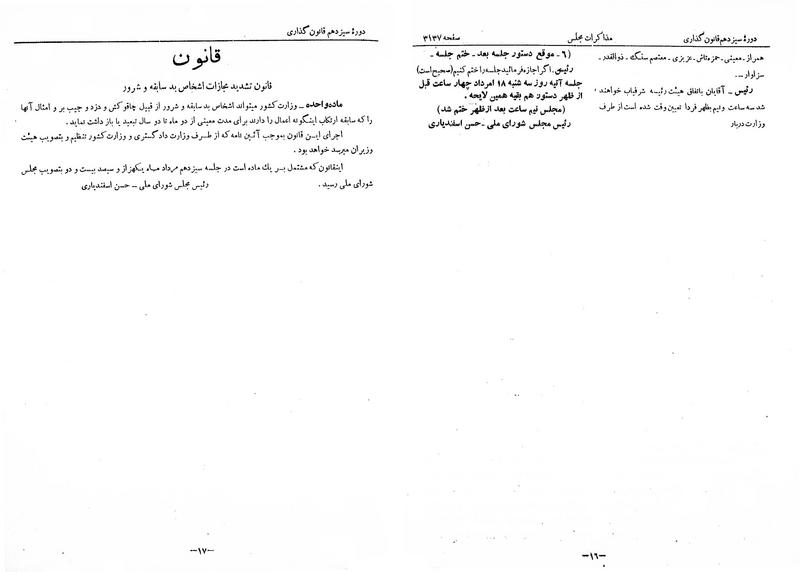 دورهٔ سیزدهم قانون گذاری
مذاکرات مجلس
صفحه ۳۱۳۷
همراز - معینی - حمزه تاش - عزیزی - معتصم سنگ - ذوالقدر -
سزاوار ...
رئیس - آقایان باتفاق هیئت رئیسه شرفیاب خواهند
شد سه ساعت و نیم بظهر فردا تعیین وقت شده است از طرف
وزارت دربار
(۶ - موقع دستور جلسه بعد - ختم جلسه -
رئیس - اگر اجازه فرمائید جلسه را ختم کنیم (صحیح است)
جلسه آتیه روز سه شنبه ۱۸ امرداد چهار ساعت قبل
از ظهر دستور هم بقیه همین لایحه .
(مجلس نیم ساعت بعد ازظهر ختم شد)
رئیس مجلس شورای ملی - حسن اسفندیاری
-۱۶-
دورهٔ سیزدهم قانون گذاری
قانون
قانون تشدید مجازات اشخاص بد سابقه و شرور
ماده واحده - وزارت کشور میتواند اشخاص بد سابقه و شرور از قبیل چاقو کش و دزد و جیب بر و امثال آنها
را که سابقه ارتکاب اینگونه اعمال را دارند برای مدت معینی از دو ماه تا دو سال تبعید یا باز داشت نماید .
اجرای ایـن قانون بموجب آئین نامه که از طـرف وزارت دادگستری و وزارت کشور تنظیم و بتصویب هیئت
وزیران میرسد خواهد بود .
اینقانون که مشتمل بـر یك ماده است در جلسه سیزدهم مرداد مـاه یکهزار و سیصد بیست و دو بتصویب مجلس
شورای ملی رسید .
رئیس مجلس شورای ملی - حسن اسفندیاری
-۱۷-